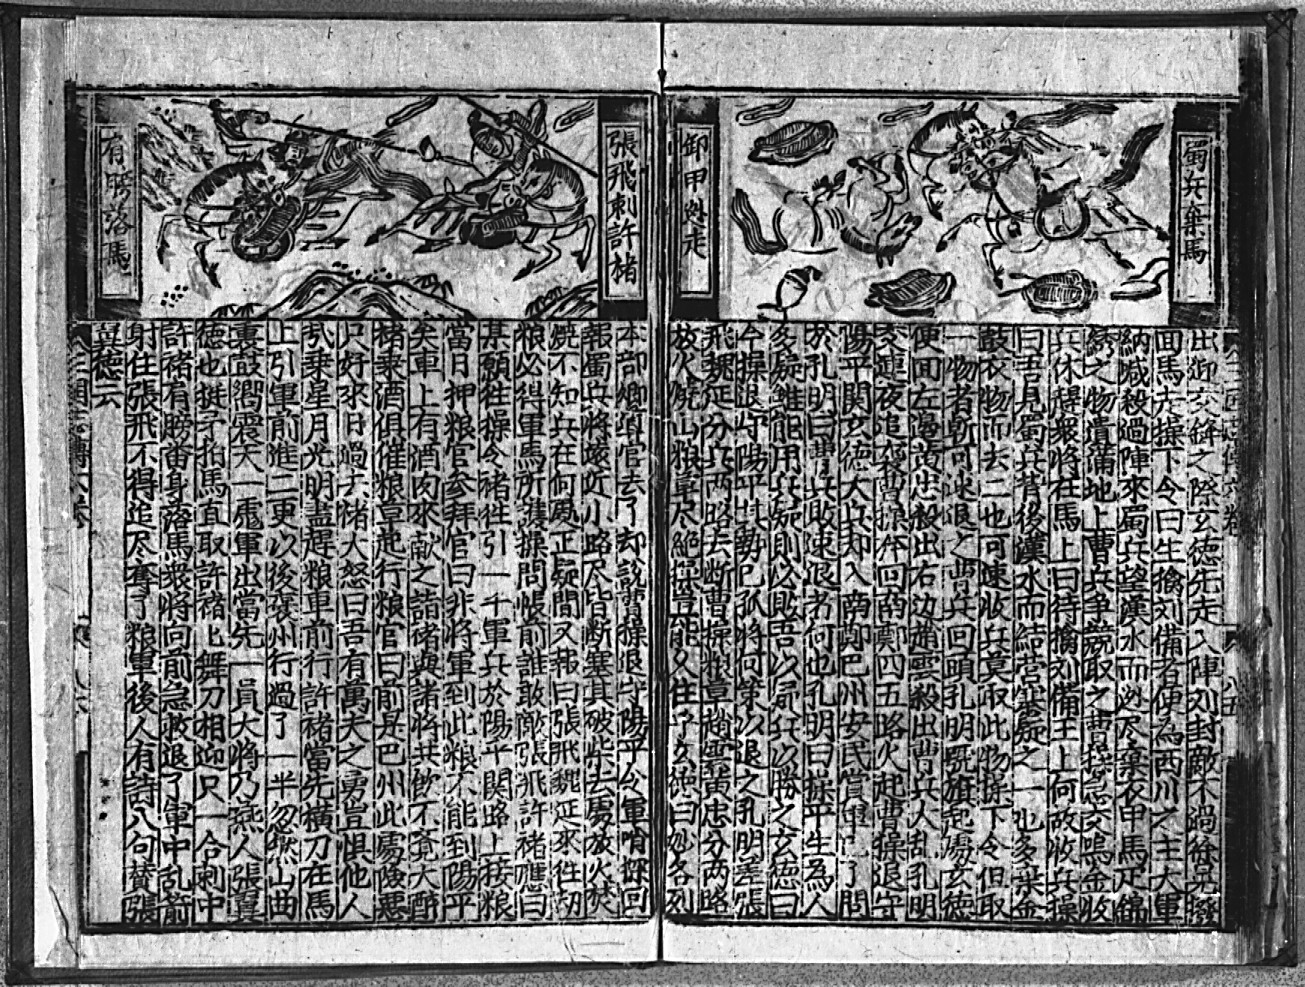 蜀兵棄馬
卸甲逃走
出迎交鋒之際玄德先走入陣刘封敵不過徐晃撥
囬馬走操下令曰生擒刘備者便為西川之主大軍
納喊殺過陣來蜀兵望漢水而逃尽棄衣甲馬疋錦
綉之物遺滿地上曹兵争競取之曹操急交鳴金收
兵休趕衆將在馬上曰待擒刘備王上何故收兵操
曰吾見蜀兵背後漢水而結营寨疑之一也多棄金
鼓衣物而去二也可速收兵莫取此物操下令但取
一物者斬可速退之曹兵回頭孔明號旗起處玄德
便回左邊黄忠殺出右边趙雲殺出曹兵大乱孔明
交連夜追襲曹操休回南鄭四五路火起曹操退守
陽平関玄德大兵却入南鄭巴州安民賞軍已了問
於孔明曰曹兵敗速退者何也孔明曰操平生為人
多疑雖能用兵疑則必敗吾以疑兵以勝之玄德曰
今操退守陽平其勢已孤將何策以退之孔明差張
飛魏延分兵两路去断曹操粮草趙雲黄忠分两路
放火燒山粮草尽絶操豈能久住了玄德曰妙各列
張飛刺許褚
有膀落馬
本部鄉導官去了却說曹操退守陽平令軍哨探回
報蜀兵將遠近小路尽皆断塞其破柴去處放火焚
燒不知兵在何處正疑間又報曰張飛魏延來往刧
粮必得軍馬所護操問帳前誰敢敵張飛許褚應曰
某願往操令褚往引一千軍兵於陽平関路上接粮
當日押粮官参拜官曰非將軍到此粮不能到陽平
矣車上有酒肉來献之詣褚與諸將共飲不竟大醉
褚乘酒俱催粮草起行粮官曰前是巴州此處險惡
只好來日過去褚大怒曰吾有萬夫之勇豈惧他人
我乘星月光明盡趕粮車前行許褚當先横刀在馬
上引軍前進二更以後襃州行過了一半忽然山凹
裏鼓嚮震天一彪軍出當先一員大將乃燕人張翼
德也挺矛拍馬直取許褚褚舞刀相迎只一合刺中
許褚有膀畨身落馬衆將向前急救退了軍中乱箭
射住張飛不得追尽奪了粮車後人有詩八句賛張
翼德云